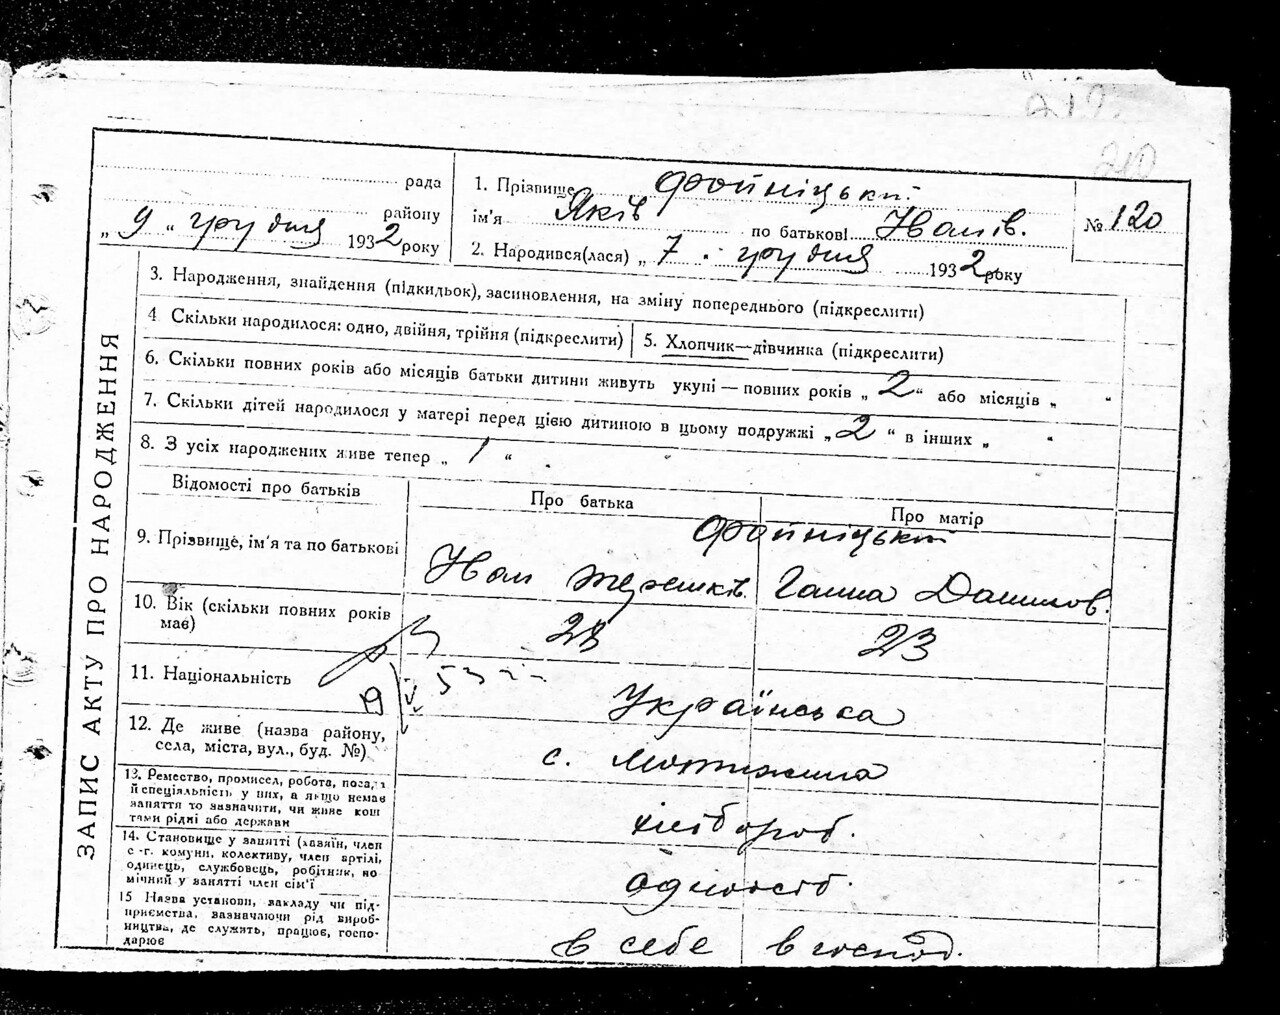 210
рада
району
„ 9 “ грудня 1932 року
1. Прізвище Фойніцький
ім'я Яків по батькові Іванів.
2. Народився(лася) „ 7 . грудня 1932 року
№ 120
ЗАПИС АКТУ ПРО НАРОДЖЕННЯ
3. Народження, знайдення (підкидьок), засиновлення, на зміну попереднього (підкреслити)
4 Скільки народилося: одно, двійня, трійня (підкреслити)
5. Хлопчик—дівчинка (підкреслити)
6. Скільки повних років або місяців батьки дитини живуть укупі — повних років „ 2 “ або місяців „ “
7. Скільки дітей народилося у матері перед цією дитиною в цьому подружжі „ 2 “ в інших „ “
8. З усіх народжених живе тепер „ 1 “
Відомості про батьків
Про батька
Про матір
9. Прізвище, ім'я та по батькові
Фойніцький
Іван
Ганна Данилов.
10. Вік (скільки повних років
має)
28
23
11. Національність
Українська
12. Де живе (назва району,
села, міста, вул., буд. №)
с. Мотижина
13. Ремество, промисел, робота, поса, а
й спеціяльність у них, а якщо немає
заняття то зазначити, чи живе кош
тами рідні або держави
хлібороб.
14. Становище у занятті (хазяїн, член
с -г. комуни, колективу, член артілі,
одинець, службовець, робітник, по
мічний у занятті член сім'ї
одноосіб.
15 Назва установи, закладу чи під-
приємства, зазначаючи рід вироб-
ництва, де служить, працює, госпо-
дарює
в себе в господ.